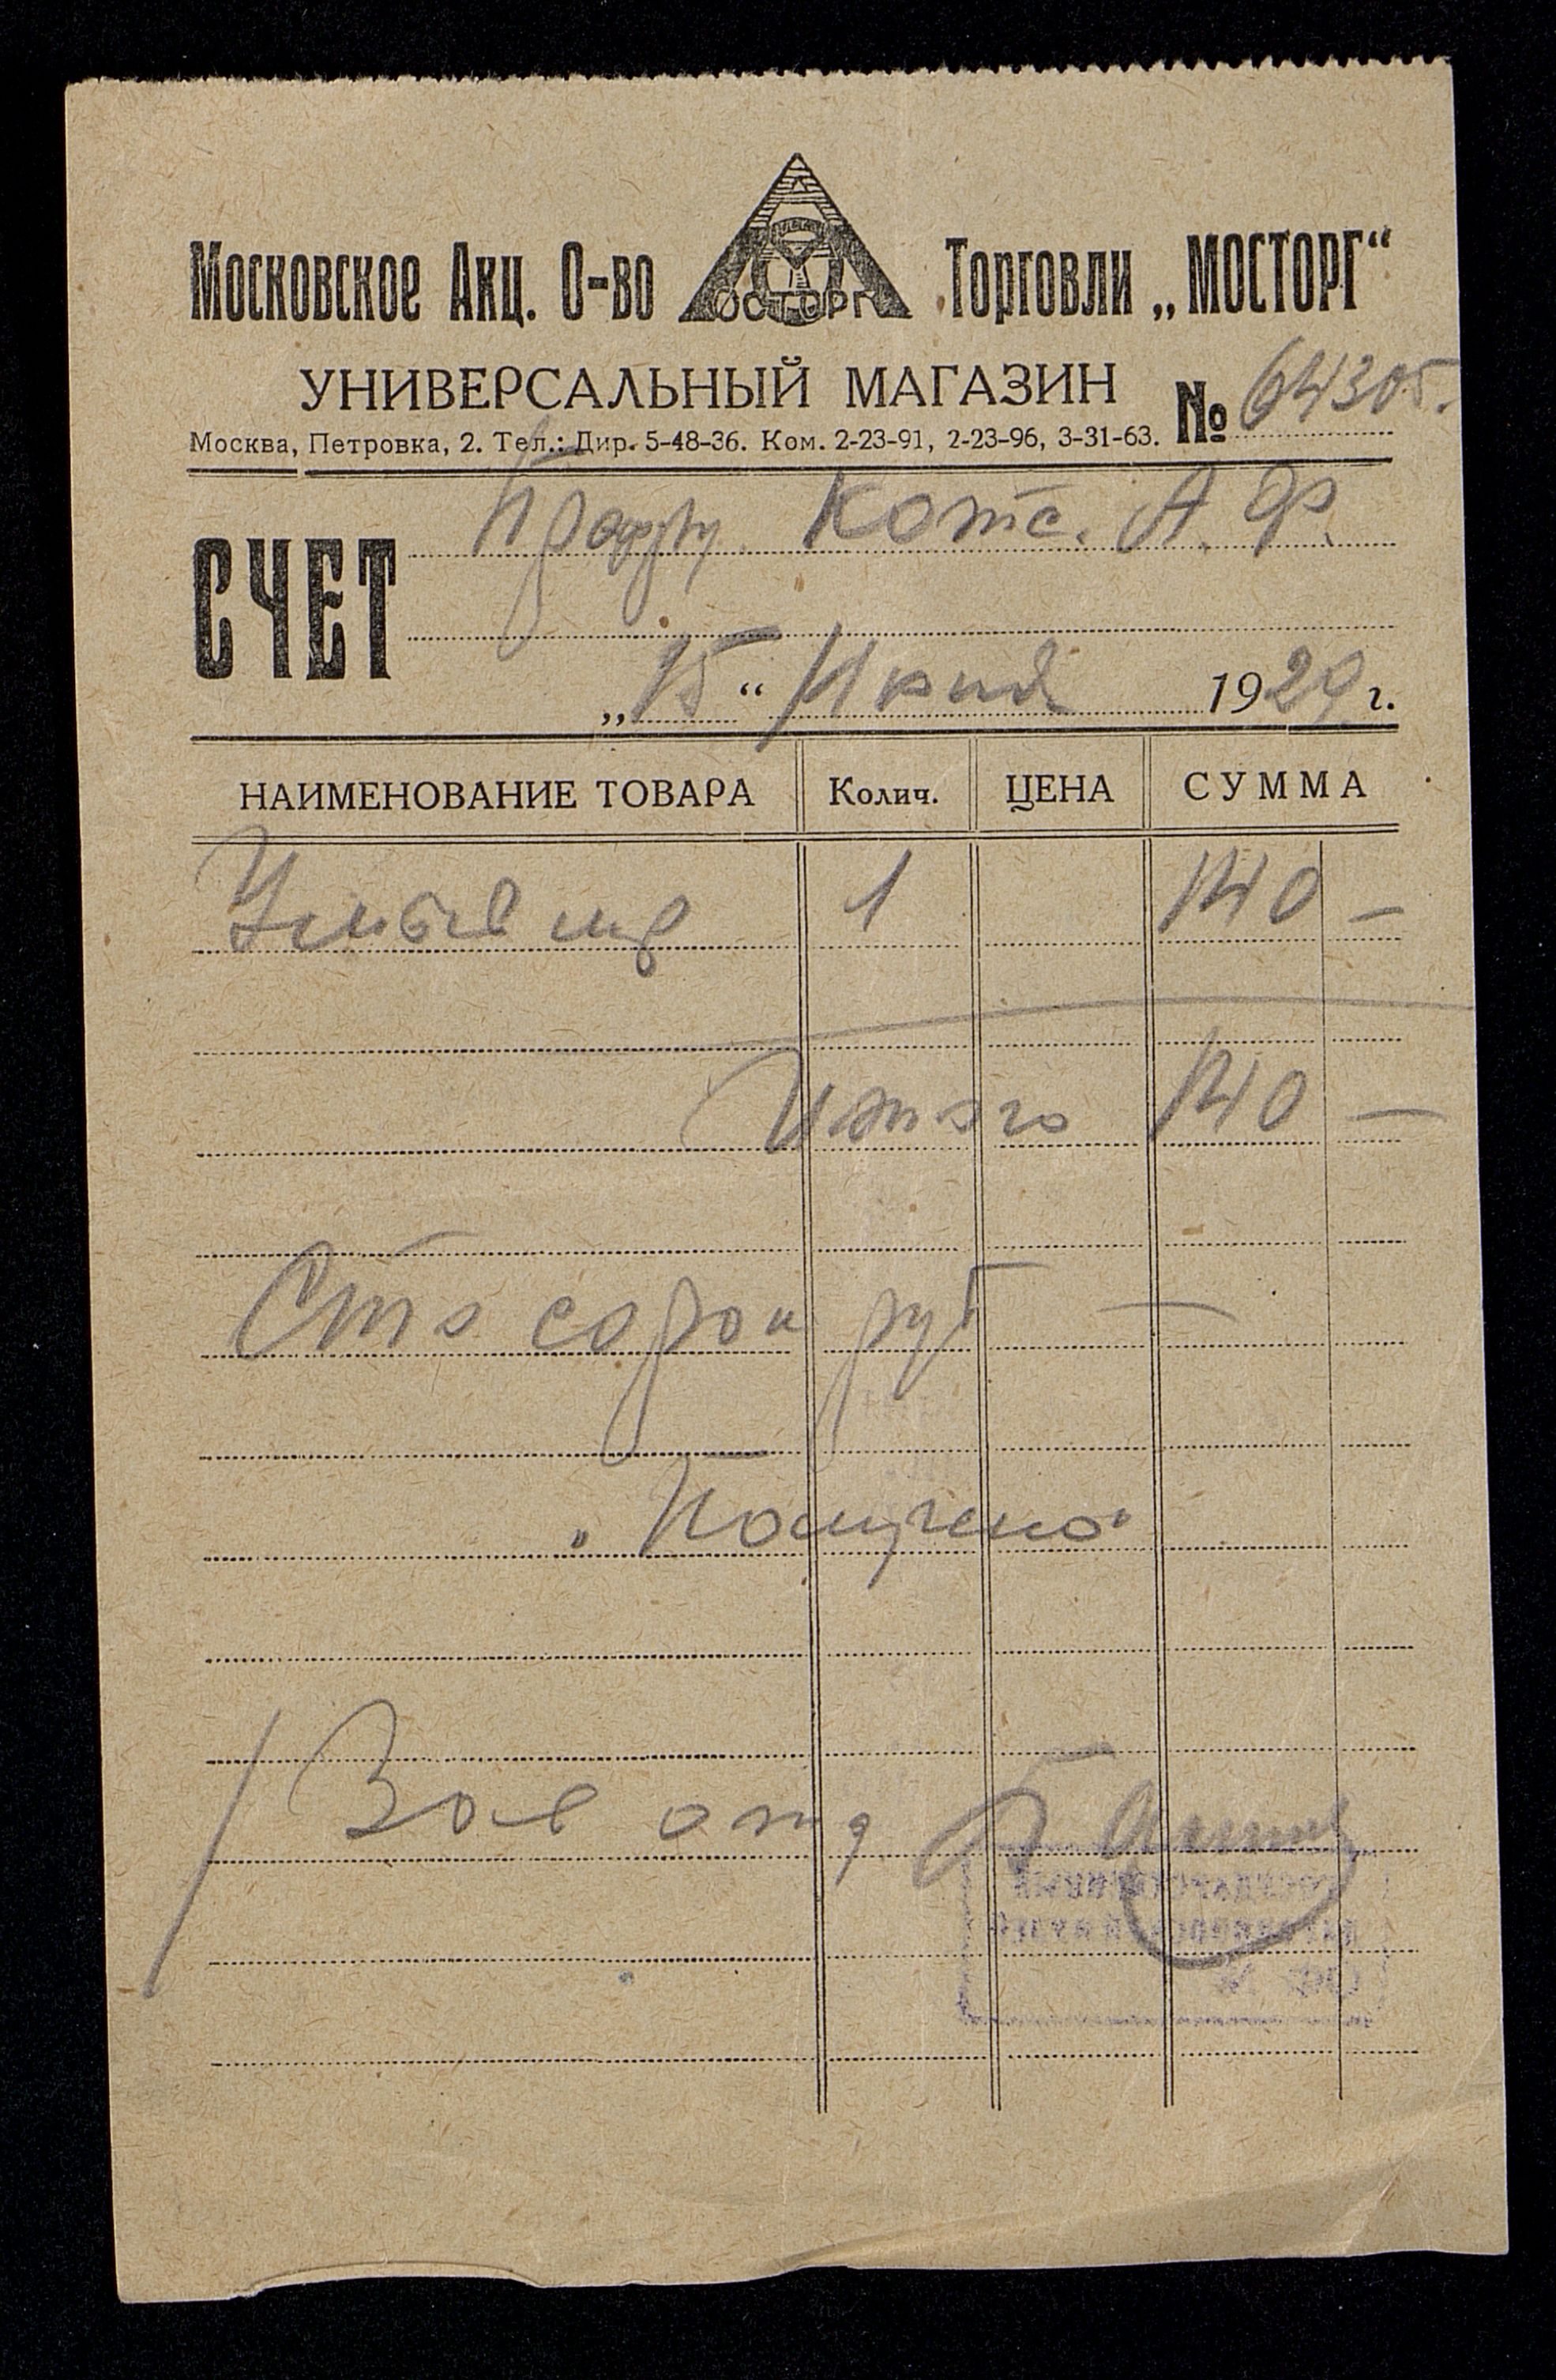 Московское Акц. О-во МОСТОРГ Торговли „МОСТОРГ“
УНИВЕРСАЛЬНЫЙ МАГАЗИН № 64305.
Москва, Петровка, 2. Тел.: Дир. 5-48-36. Ком. 2-23-91, 2-23-96, 3-31-63.
СЧЕТ Профу. Котс. А. Ф.
„15“ Июня 1929 г.
НАИМЕНОВАНИЕ ТОВАРА Колич. ЦЕНА СУММА
1 140 —
Итого 140 —
Сто сорок руб —
„Получено“
Зав отд